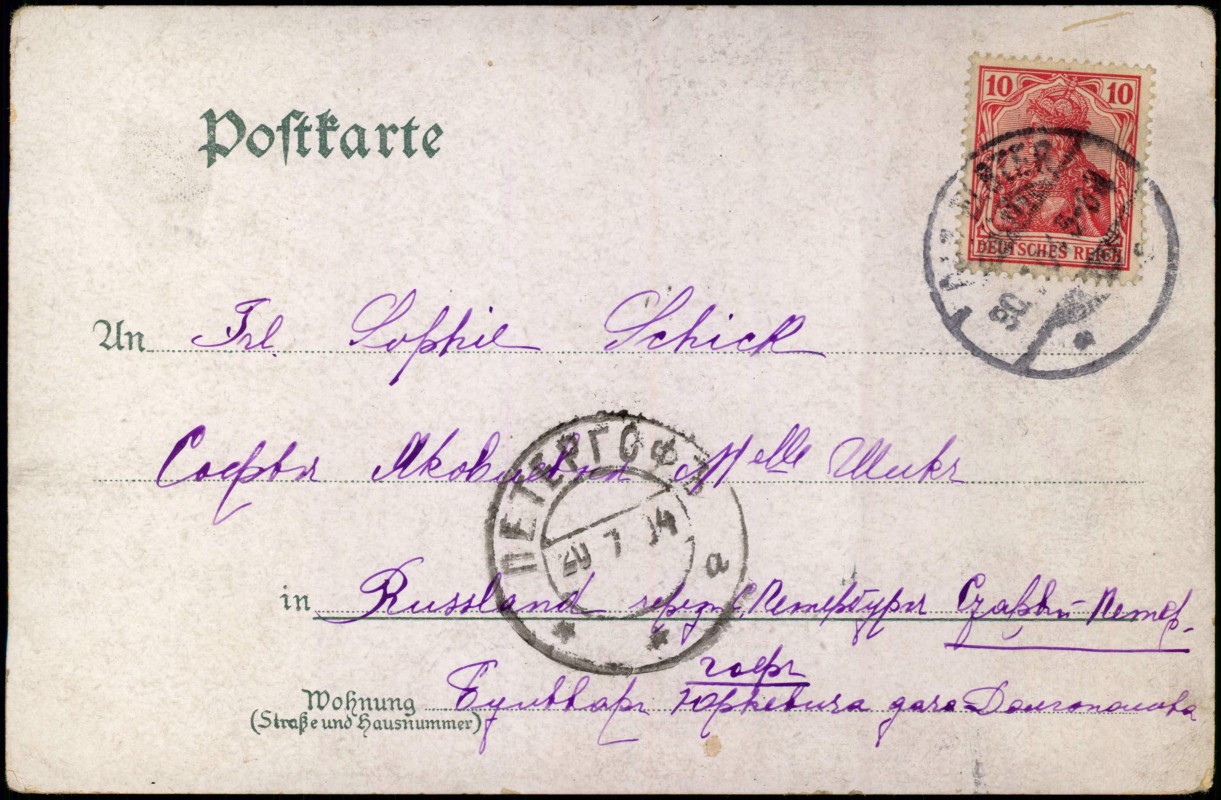 Postkarte
10 10
DEUTSCHES REICH
An Frl. Sophie Schick
Софья Яковлевна M elle Шикъ
ПЕТЕРГОФЪ
20 7 04
а
in Russland черезъ С. Петербургъ Старый-Петер-
гофъ
Wohnung Бульваръ Юркевича дача Долгополова
(Straße und Hausnummer)